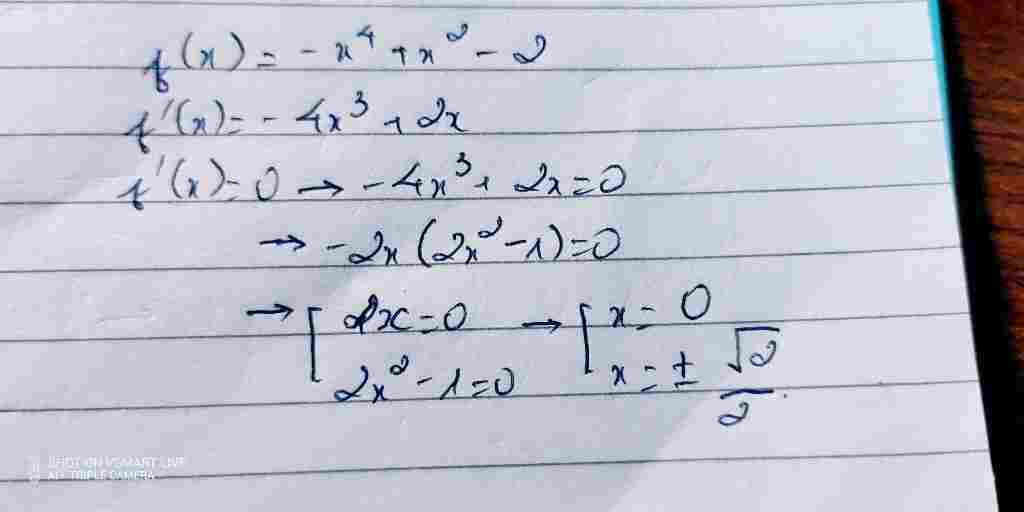 f(x) = - x⁴ + x² - 2
f'(x) = - 4x³ + 2x
f'(x) = 0 → - 4x³ + 2x = 0
→ - 2x (2x² - 1) = 0
→ [ 2x = 0 → [ x = 0
2x² - 1 = 0 x = ± √2/2.
SHOT ON VSMART LIVE
AI TRIPLE CAMERA